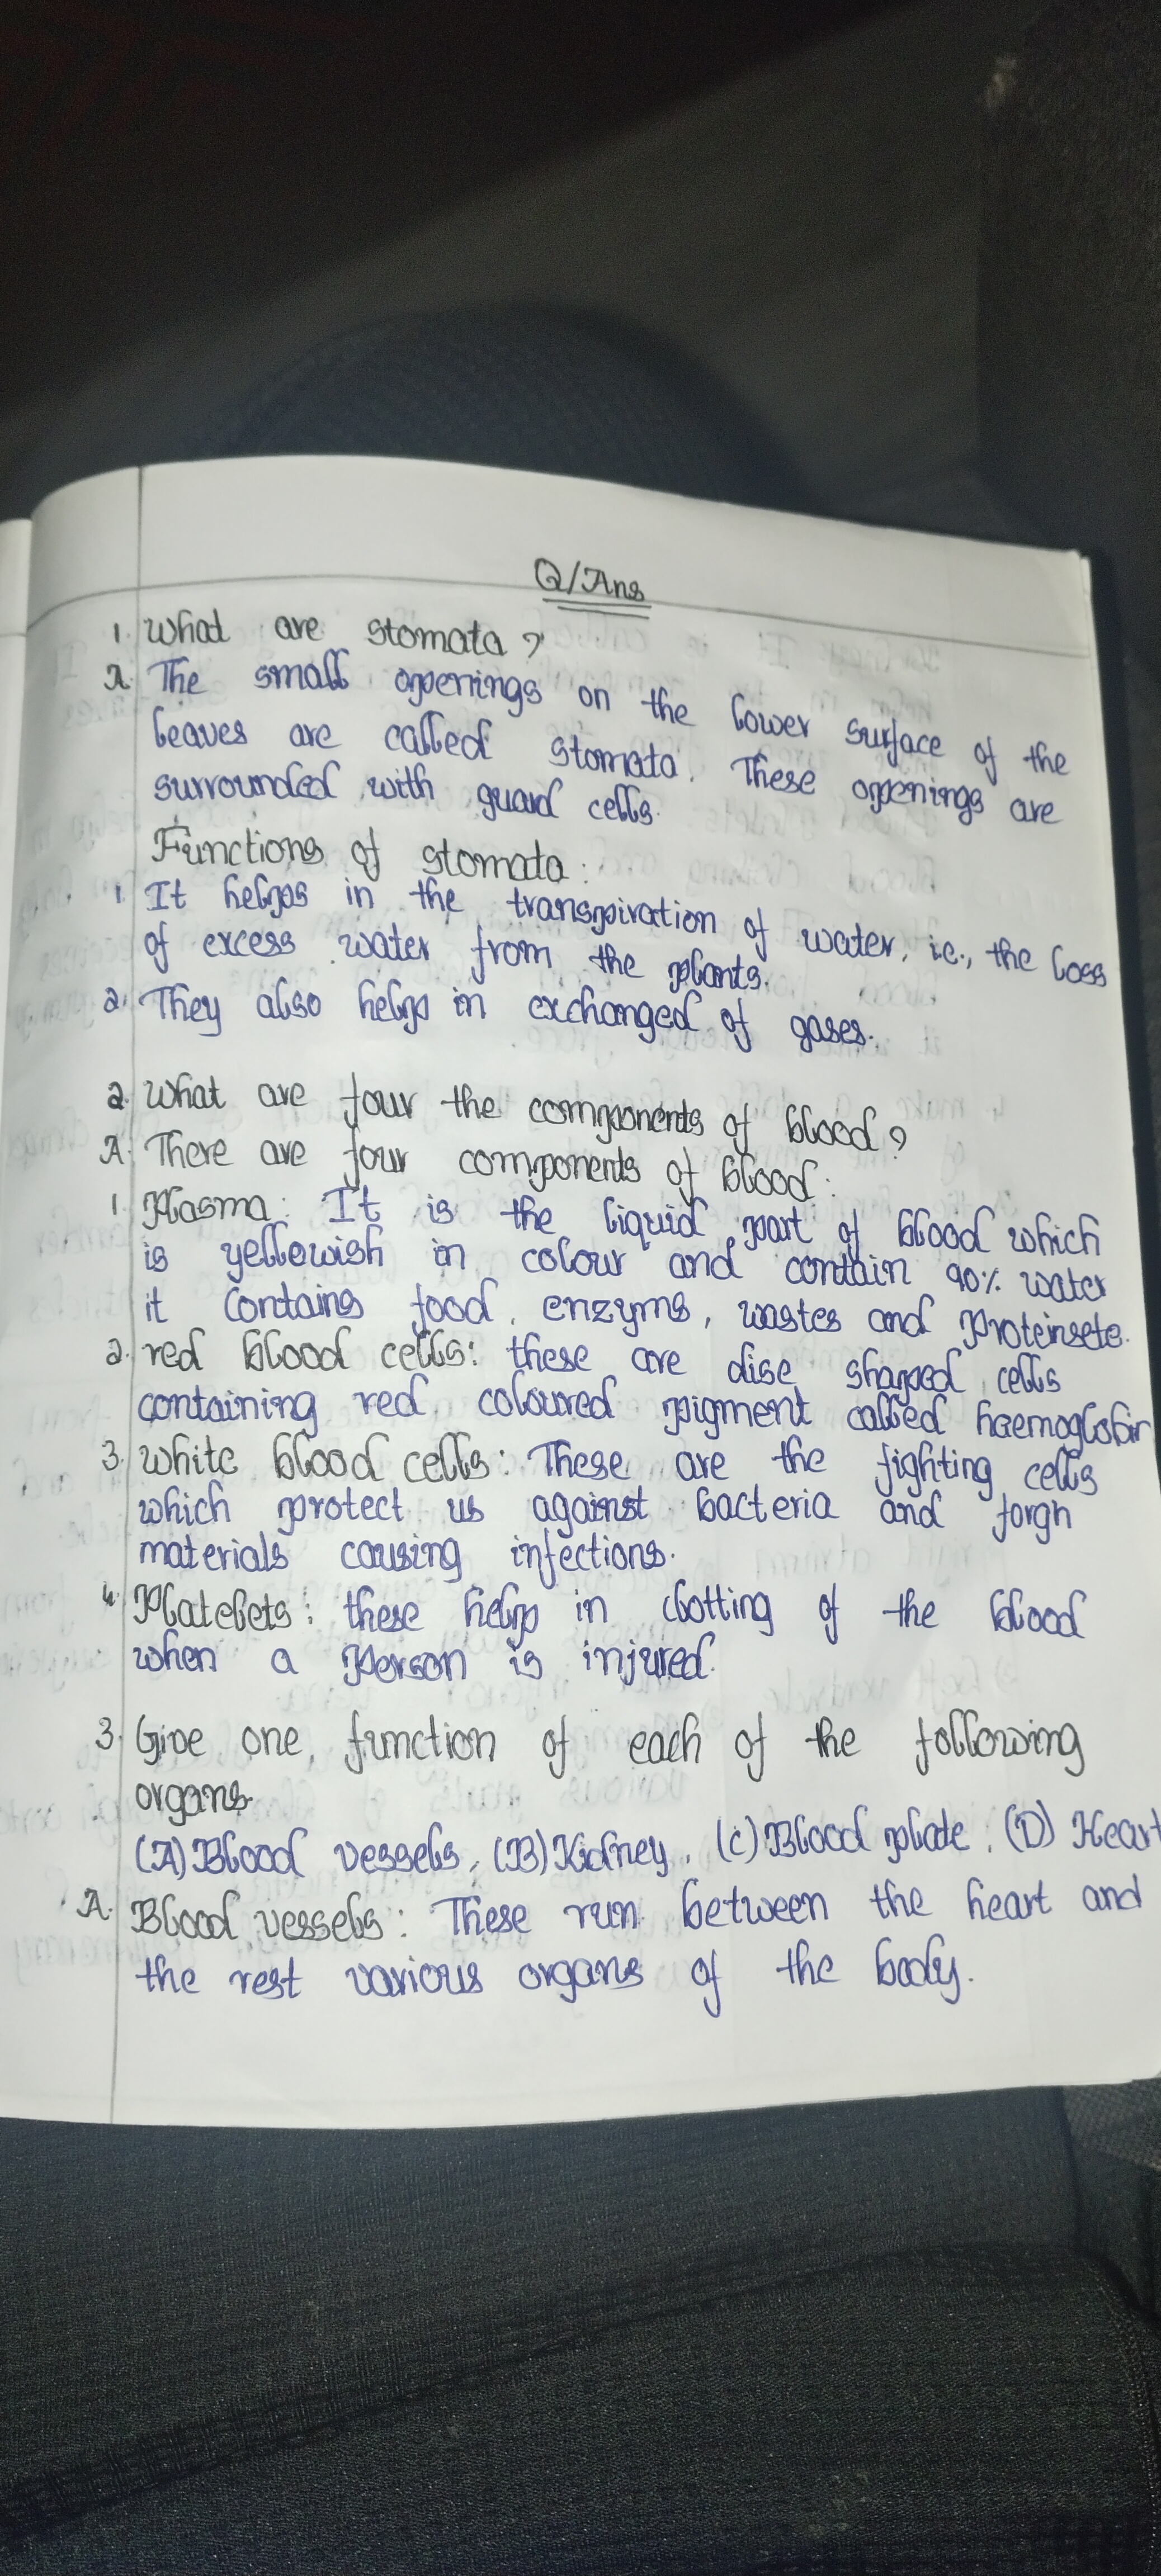 Q/Ans
1. What are stomata?
A. The small openings on the lower surface of the
leaves are called stomata. These openings are
surrounded with guard cells.
Functions of stomata:
1. It helps in the transpiration of water, i.e., the loss
of excess water from the plants.
2. They also help in exchanged of gases.
2. What are four the components of blood?
A. There are four components of blood:
1. Plasma: It is the liquid part of blood which
is yellowish in colour and contain 90% water
it contains food, enzyms, wastes and Proteinsetc.
2. red blood cells: these are disc shaped cells
containing red coloured pigment called haemoglobin
3. White blood cells: These are the fighting cells
which protect us against bacteria and forgn
materials causing infections.
4. Platelets: these help in clotting of the blood
when a Person is injured.
3. Give one function of each of the following
organs.
(A) Blood vessels, (B) Kidney, (C) Blood plate, (D) Heart
A. Blood vessels: These run between the heart and
the rest various organs of the body.